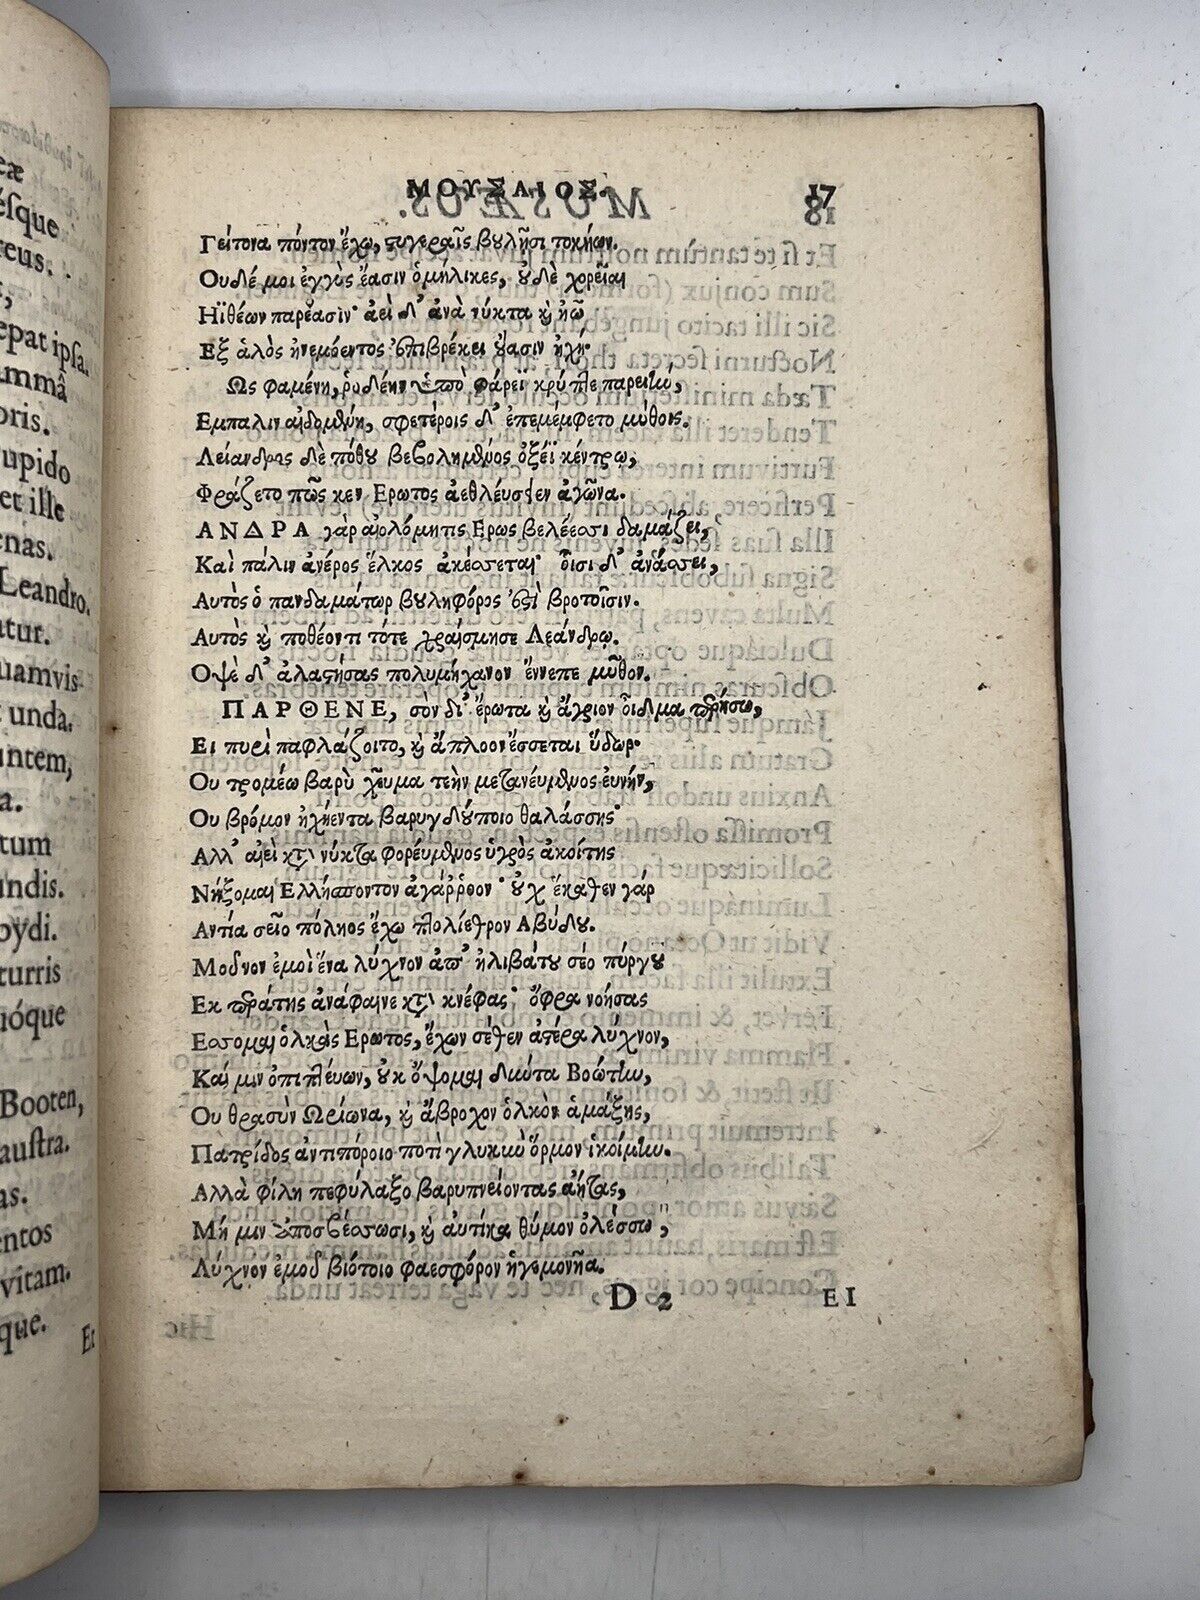 eæ
ésque
teus.
epat ipsa.
ammâ
oris.
upido
et ille
enas.
Leandro.
atur.
uamvis
unda.
untem,
a.
tum
undis.
bydi.
turris
ióque
Booten,
austra.
as.
entos
vitam.
que.
Et
ΜΟΥΣΑΙΟΣ. 17
Γείτονα πόντον ἔχω, στυγεραῖς βουλῇσι τοκήων.
Οὐδέ μοι ἐγγὺς ἔασιν ὁμήλικες, οὐδὲ χορεῖαι
Ηϊθέων παρέασιν· ἀεὶ δ' ἀνὰ νύκτα καὶ ἠῶ
Εξ ἁλὸς ἠνεμόεντος ἐπιβρέμει οὔασιν ἠχή.
Ως φαμένη, ῥοδέην ὑπὸ φάρεϊ κρύπτε παρειὴν,
Εμπαλιν αἰδομένη, σφετέροις δ' ἐπεμέμφετο μύθοις.
Λείανδρος δὲ πόθου βεβολημένος ὀξέϊ κέντρῳ,
Φράζετο πῶς κεν Ερωτος ἀεθλεύσειεν ἀγῶνα.
ΑΝΔΡΑ γὰρ αἰολόμητις Ερως βελέεσσι δαμάζει,
Καὶ πάλιν ἀνέρος ἕλκος ἀκέσσεται· οἷσι δ' ἀνάσσει,
Αυτὸς ὁ πανδαμάτωρ βουληφόρος ἐστὶ βροτοῖσιν.
Αυτὸς καὶ ποθέοντι τότε χραίσμησε Λεάνδρῳ.
Οψὲ δ' ἀλαστήσας πολυμήχανον ἔννεπε μῦθον.
ΠΑΡΘΕΝΕ, σὸν δι' ἔρωτα καὶ ἄγριον οἶδμα περήσω,
Ει πυρὶ παφλάζοιτο, καὶ ἄπλοον ἔσσεται ὕδωρ.
Ου τρομέω βαρὺ χεῦμα τεὴν μετανεύμενος εὐνήν,
Ου βρόμον ἠχήεντα βαρυγδούποιο θαλάσσης·
Αλλ' αἰεὶ κατὰ νύκτα φορεύμενος ὑγρὸς ἀκοίτης
Νήξομαι Ελλήσποντον ἀγάρροον· οὐχ ἕκαθεν γάρ
Αντία σεῖο πόληος ἔχω πτολίεθρον Αβύδου.
Μοῦνον ἐμοὶ ἕνα λύχνον ἀπ' ἠλιβάτου σέο πύργου
Εκ περάτης ἀνάφαινε κατὰ κνέφας· ὄφρα νοήσας
Εσσομαι ὁλκὰς Ερωτος, ἔχων σέθεν ἀστέρα λύχνον,
Καί μιν ὀπιπτεύων, οὐκ ὄψομαι δύντα Βοώτην,
Ου θρασὺν Ωρίωνα, καὶ ἄβροχον ὁλκὸν ἁμάξης,
Πατρίδος ἀντιπόροιο ποτὶ γλυκὺν ὅρμον ἱκοίμην.
Αλλὰ φίλη πεφύλαξο βαρυπνείοντας ἀήτας,
Μή μιν ἀποσβέσσωσι, καὶ αὐτίκα θύμον ὀλέσσω,
Λύχνον ἐμοῦ βιότοιο φαεσφόρον ἡγεμονῆα.
D 2 ΕΙ